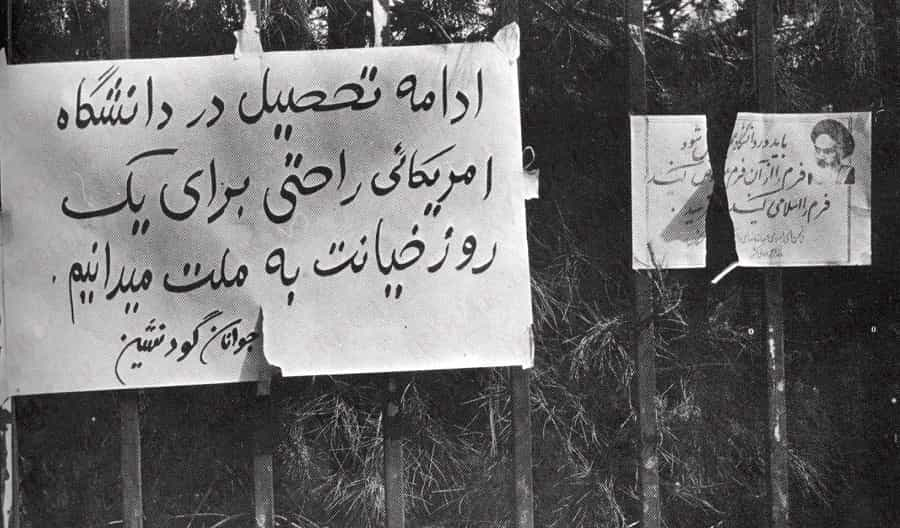 ادامه تحصیل در دانشگاه
امریکائی راحتی برای یک
روز خیانت به ملت میدانیم.
جوانان گودنشین
باید در دانشگاه شود
فرم را از آن فرم
فرم را اسلامی کنید